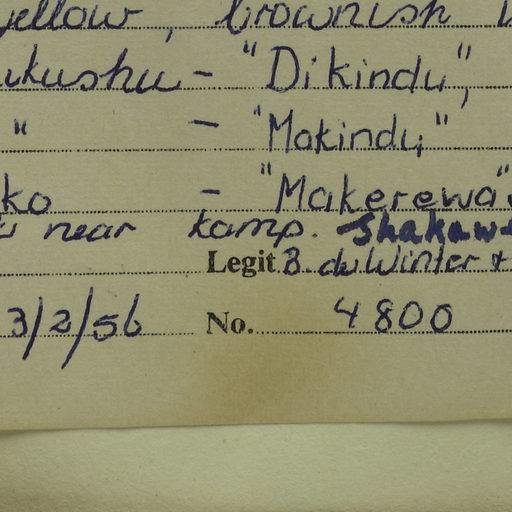 yellow, brownish
ukushu - "Dikindu",
" - "Makindu;"
ko - "Makerewa"
near kamp. Shakaw
Legit B de Winter +
3/2/56 No. 4800